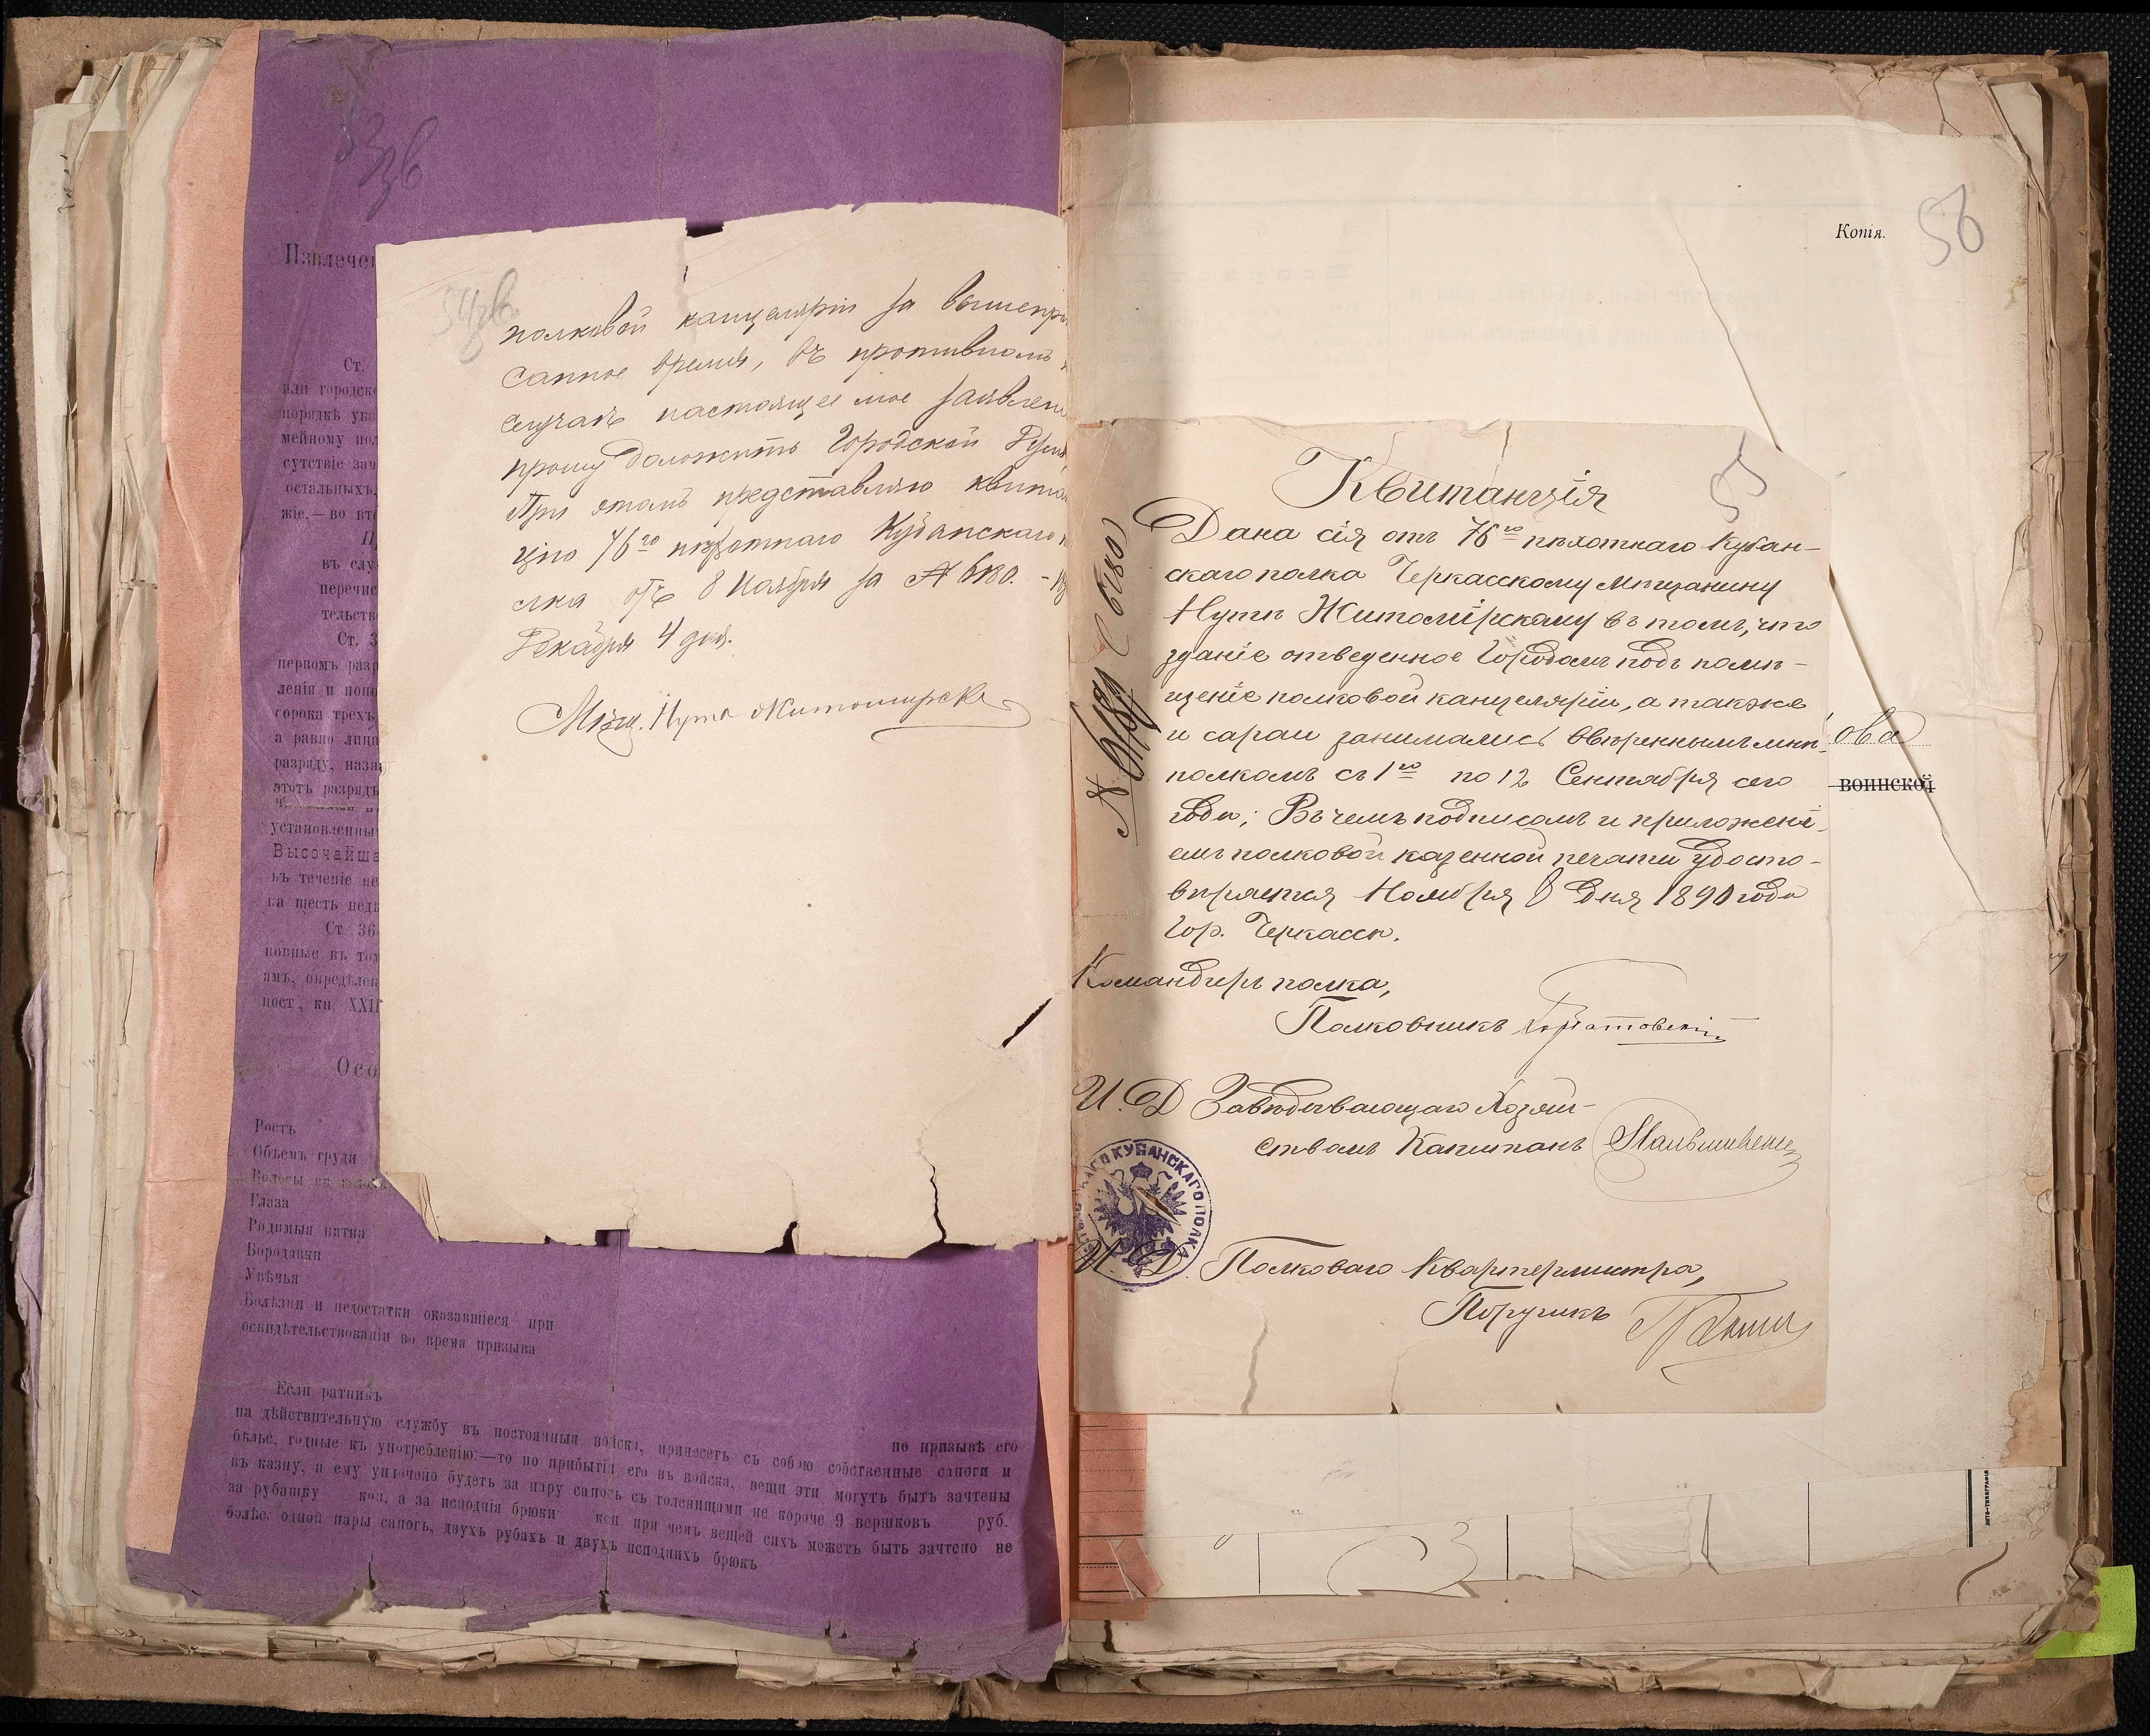 53 зв
Извлечен
Ст.
или городско
порядкѣ ука
мейному пол
сутствіе зач
остальныхъ,
жіе,— во вто
въ слу
перечис
тельств
Ст. 3
первомъ разр
ленія и попо
сорока трехъ
а равно лица
разряду, назн
этотъ разрядъ
установленны
Высочайша
въ теченіе не
на шесть недѣ
Ст 36
ковые въ то
имъ, опредѣлен
ност, кн. XXII
Осо
Ростъ
Объемъ груди
Волосы на
Глаза
Родимыя пятна
Бородавки
Увѣчья
Болѣзни и недостатки оказавшіеся при
освидѣтельствованіи во время призыва
Если ратникъ по призывѣ его
на дѣйствительную службу въ постоянныя войска, принесетъ съ собою собственные сапоги и
бѣлье, годные къ употребленію:—то по прибытіи его въ войска, вещи эти могутъ быть зачтены
въ казну, а ему уплочено будетъ за пару сапогъ съ голенищами не короче 9 вершковъ руб.
за рубашку коп. а за исподнія брюки коп при чемъ вещей сихъ можетъ быть зачтено не
болѣе: одной пары сапогъ, двухъ рубахъ и двухъ исподнихъ брюкъ
54 зв.
полковой канцеляріи за вышепри
санное время, въ противномъ
случаѣ настоящее мое заявлен
прошу доложить Городской Думѣ
При этомъ представляю квитан
цію 76го пѣхотнаго Кубанскаго п
лка отъ 8 Ноября за № 6180. - 18
Декабря 4 дня.
Мѣщ. Нута Житомирск
Копія.
56
55
Квитанція
Дана сія отъ 76го пѣхотнаго Кубан-
скаго полка Черкасскому Мѣщанину
Нутѣ Житомірскому въ томъ, что
зданіе отведенное Городомъ подъ помѣ-
щеніе полковой канцеляріи, а также
и сараи занимались ввѣреннымъ мнѣ
полкомъ съ 1го по 12 Сентября сего
года; Въ чемъ подписомъ и приложені-
емъ полковой казенной печати удосто-
вѣряется Ноября 8 дня 1890 года
Гор. Черкассы.
Командиръ полка,
Полковникъ
И. Д Завѣдывающаго Хозяй-
ствомъ Капитанъ
И. Д. Полковаго Квартермистра,
Поручикъ
КУБАНСКАГО ПОЛКА
№ 6180
ова
воинской